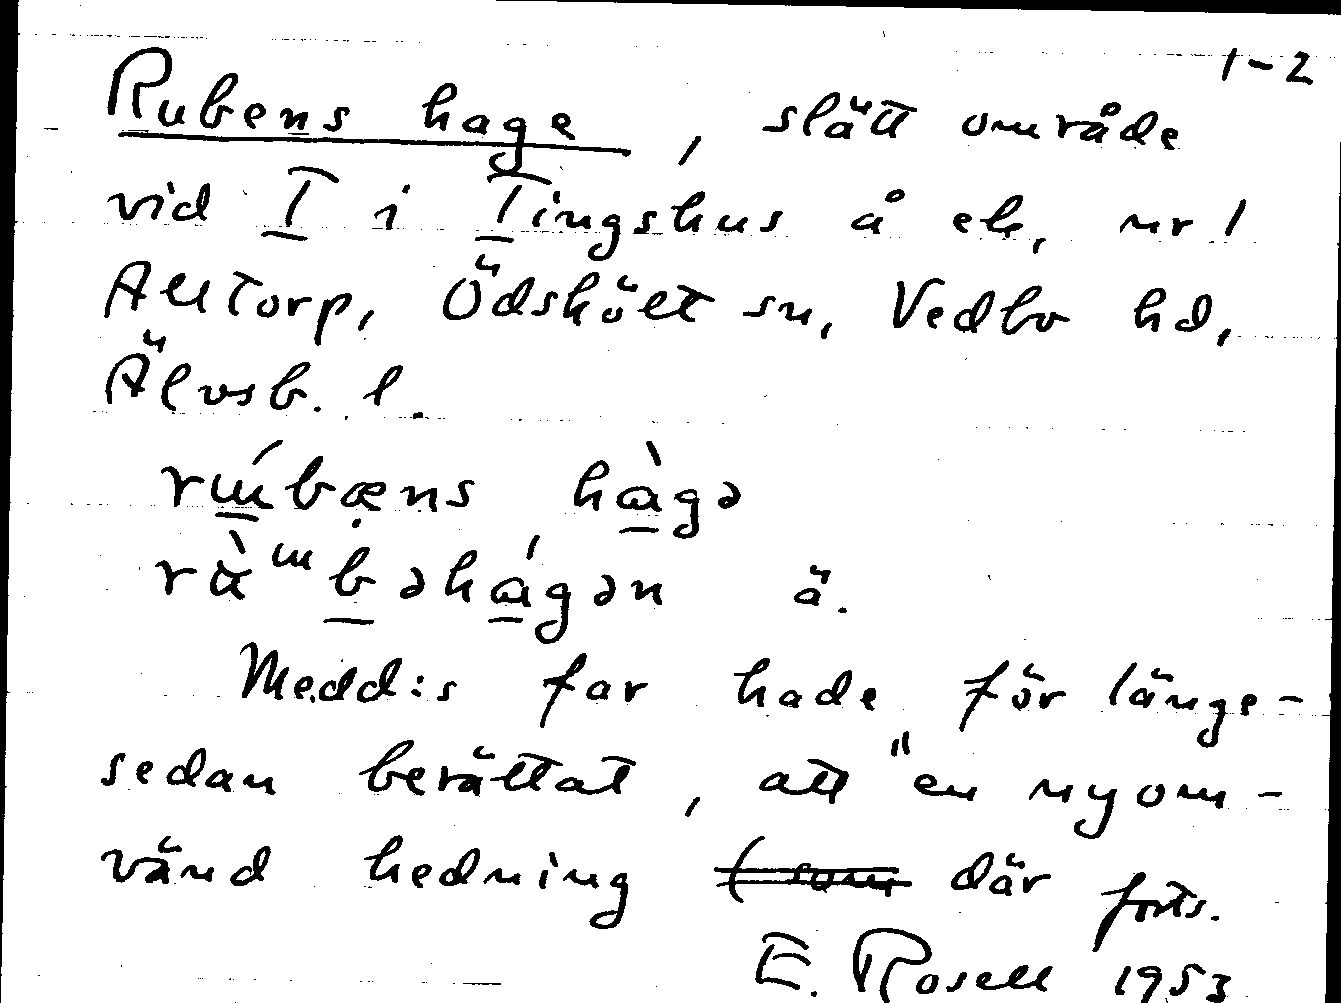 1-2
Rubens hage, slätt område
vid T i Tingshus å ek, nr 1
Alltorp, Ödskölt sn, Vedbo hd,
Älvsb. l.
hàgə
ä.
Medd:s far hade för länge-
sedan berättat, att "en nyom-
vänd hedning (som där forts.
E. Rosell 1953